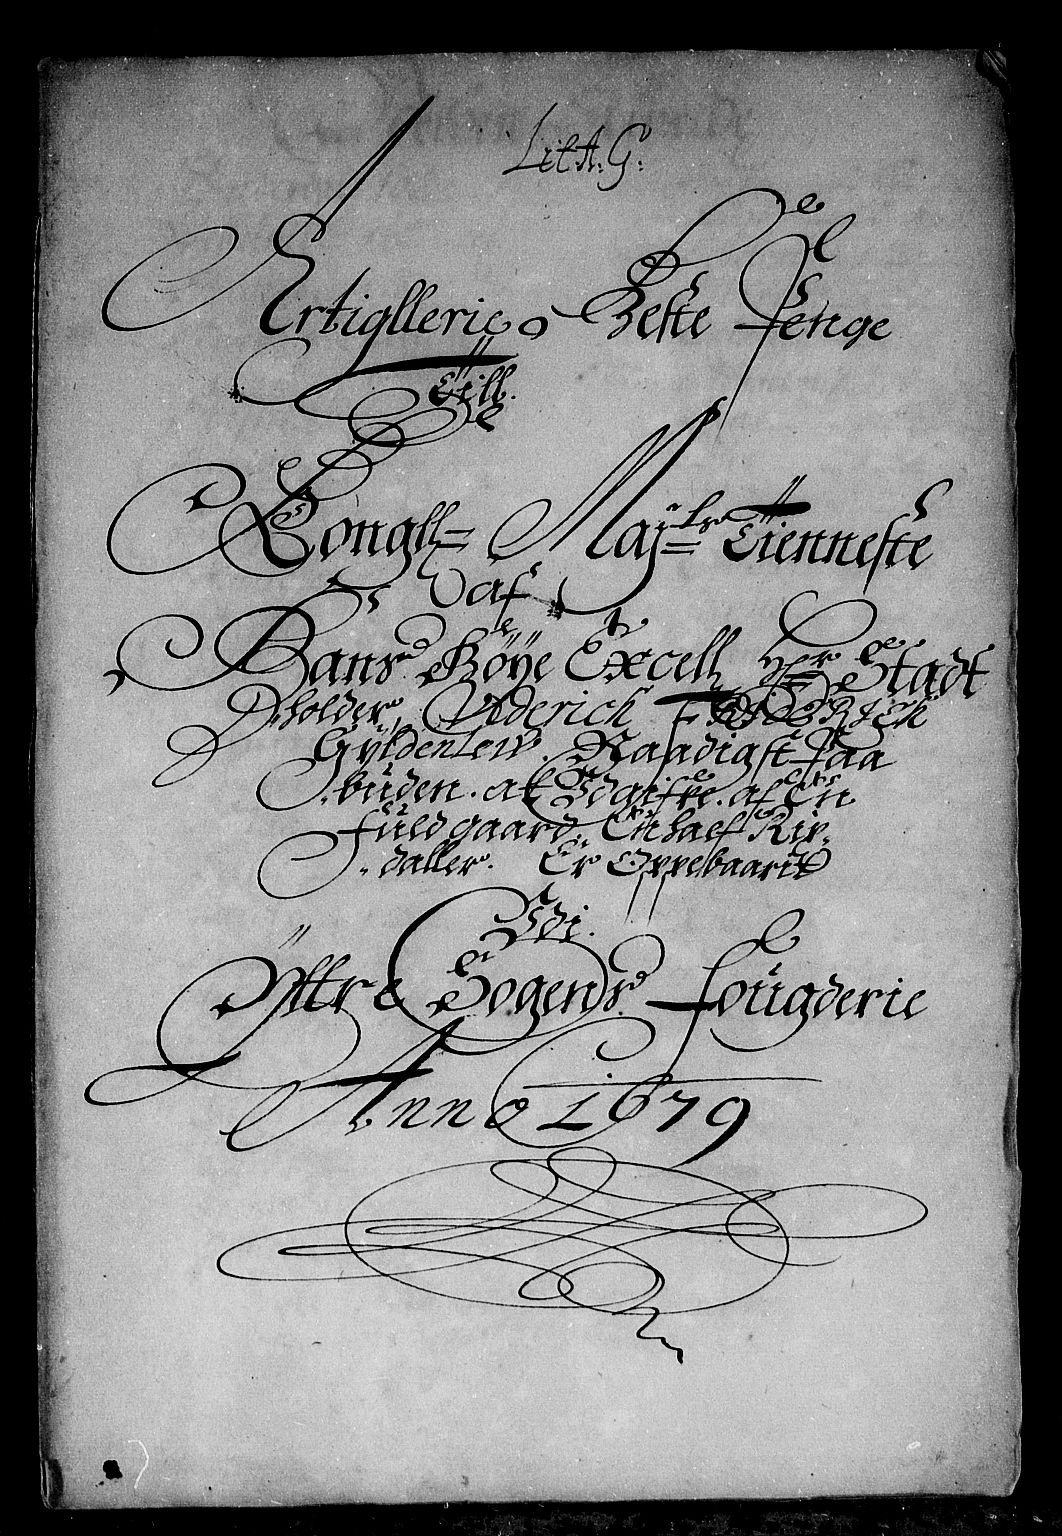 LitA. G:
Artigllerie Heste Penge
Till.
Kongll= Maj:tz Tienneste
af
Hans Høye Excell Her Stadt
holder, Ulderich FRIDERICH
Gyldenlew. Naadigst paa
büden. at Udgifve. af En
füld gaard. En half Rix
daller. Er Oppebaarit
Udi.
Yttre Sogens fougderie
Anno 1679